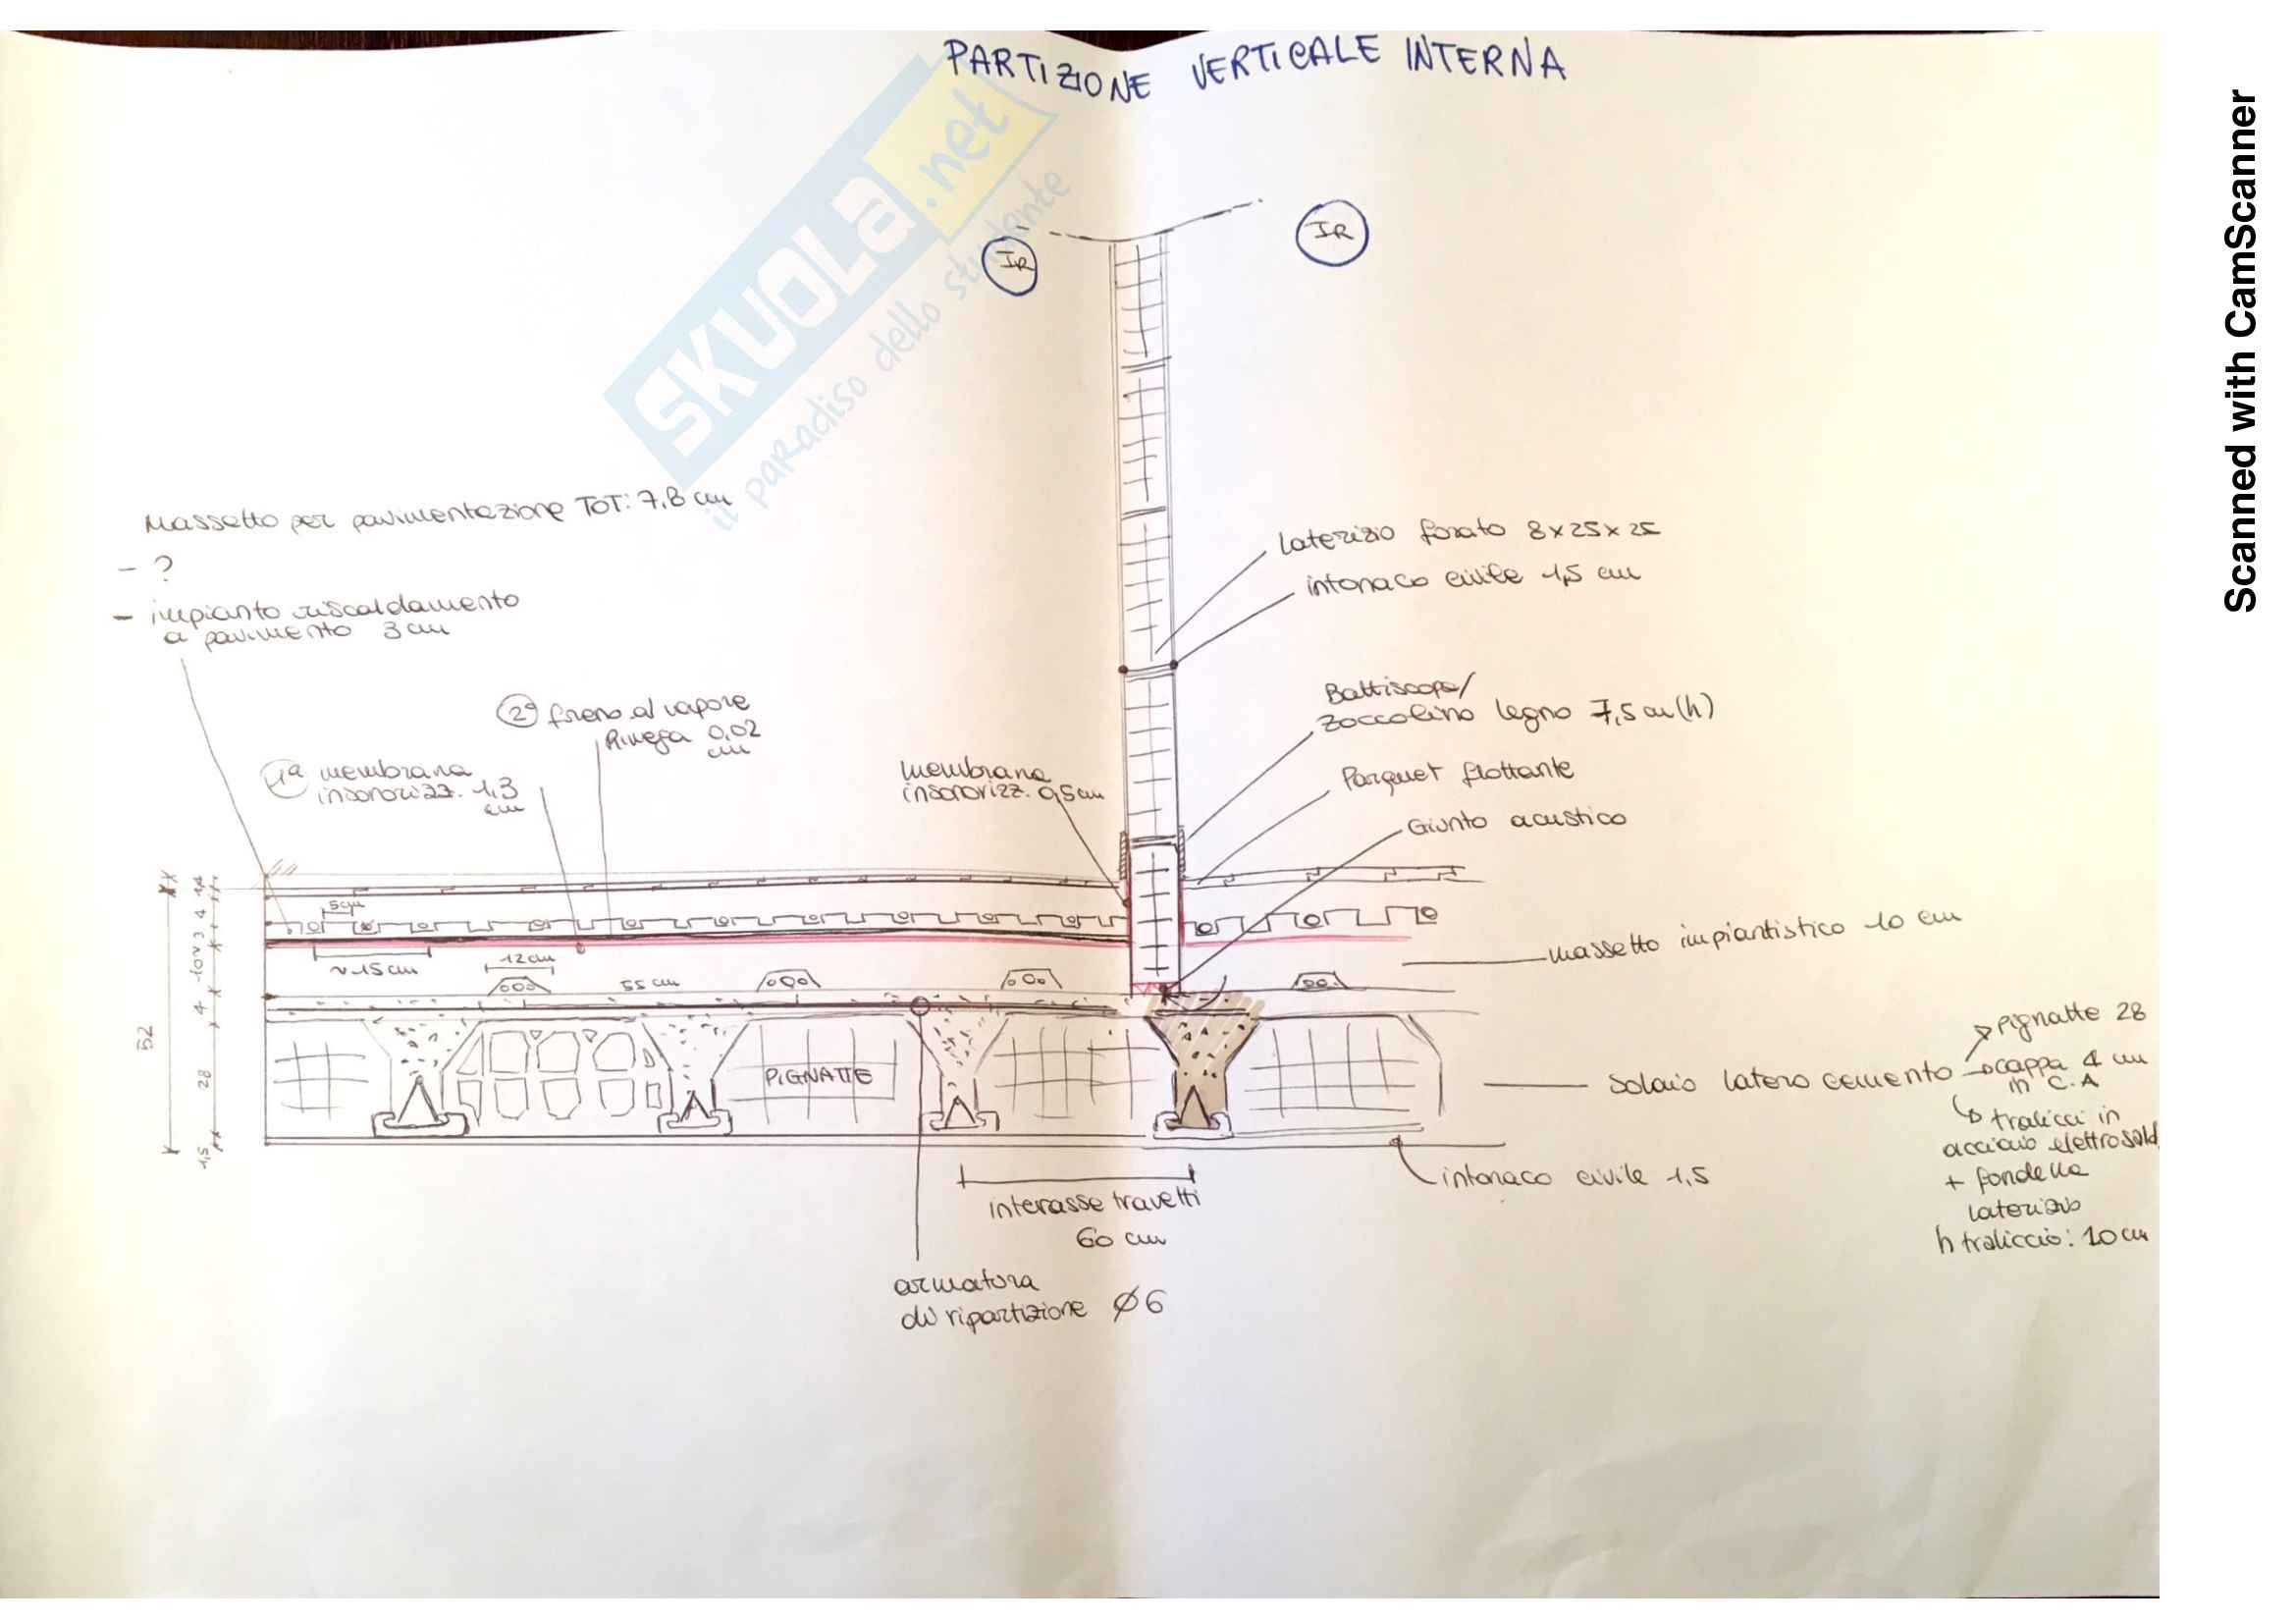 PARTIZIONE VERTICALE INTERNA
SKUOLA.net
il paradiso dello studente
IR
IR
Massetto per pavimentazione TOT: 7,8 cm
- ?
- impianto riscaldamento
a pavimento 3 cm
2ª freno al vapore
Riwega 0,02
cm
1ª membrana
insonorizz. 1,3
cm
membrana
insonorizz. 0,5 cm
Laterizio forato 8x25x25
intonaco civile 1,5 cm
Battiscopa/
zoccolino legno 7,5 cm (h)
Parquet flottante
Giunto acustico
massetto impiantistico 10 cm
5cm
~15 cm
12 cm
55 cm
4
3
10
4
28
1,5
52
PIGNATTE
solaio latero cemento
pignatte 28
cappa 4 cm
in C.A
tralicci in
acciaio elettrosald
+ fondello
laterizio
h traliccio: 10 cm
intonaco civile 1,5
interasse travetti
60 cm
armatura
di ripartizione Ø6
Scanned with CamScanner